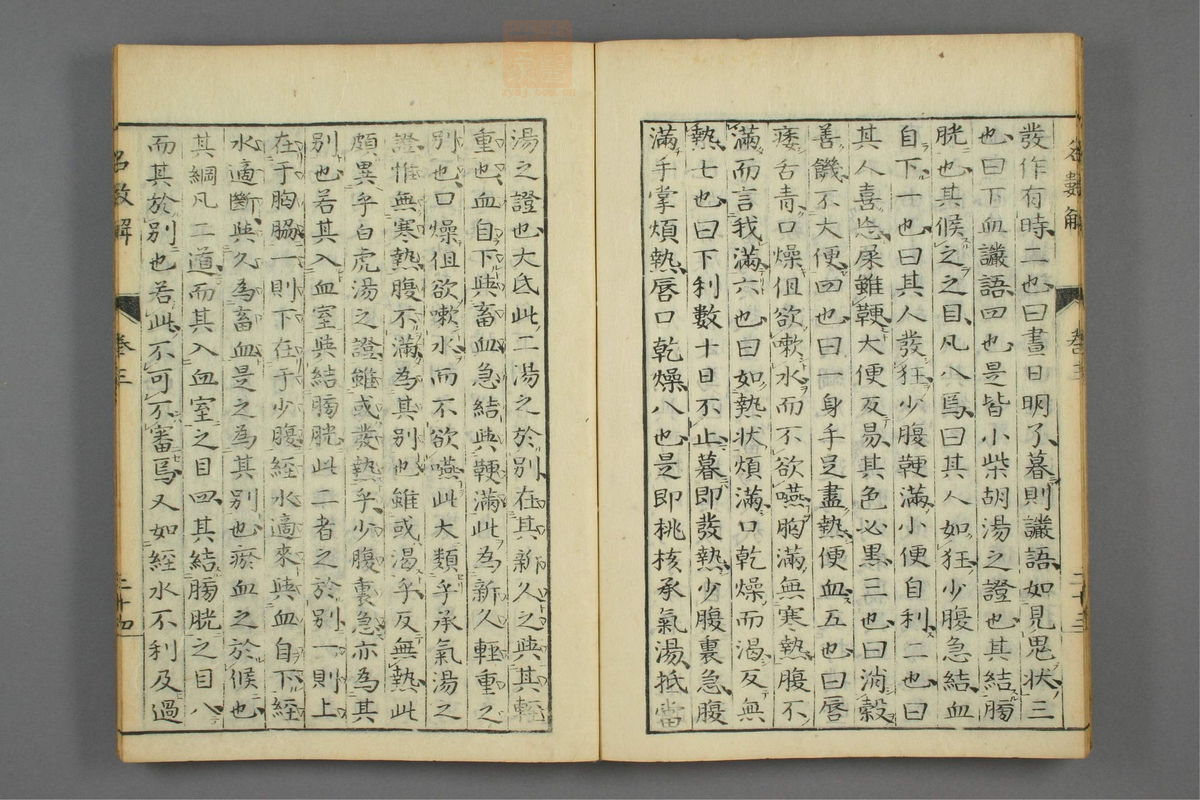 發作有時、二也、曰晝日明了、暮則讝語、如見鬼狀、三
也、曰下血讝語、四也、是皆小柴胡湯之證也、其結膓
胱也、其候之之目、凡八焉、曰其人如狂、少腹急結、血
自下、一也、曰其人發狂、少腹鞕滿、小便自利、二也、曰
其人喜忘、屎雖鞕、大便反易、其色必黑、三也、曰消穀
善饑、不大便、四也、曰一身手足盡熱、便血、五也、曰唇
痿舌青、口燥、但欲嗽水、而不欲嚥、胸滿無寒熱、腹不
滿、而言我滿、六也、曰如熱狀、煩滿、口乾燥而渴、反無
熱、七也、曰下利數十日不止、暮即發熱、少腹裏急、腹
滿、手掌煩熱、唇口乾燥、八也、是即桃核承氣湯、抵當
湯之證也、大氐此二湯之於別、在其新久之與其輕
重也、血自下、與畜血急結、與鞕滿、此為新久輕重之
別也、口燥、但欲嗽水、而不欲嚥、此大類乎承氣湯之
證、惟無寒熱、腹不滿、為其別也、雖或渴乎、反無熱、此
頗異乎白虎湯之證、雖或發熱乎、少腹裏急、亦為其
別也、若其入血室、與結膓胱、此二者之於別、一則上
在于胸脇、一則下在于少腹、經水適來、與血自下、經
水適斷、與久為畜血、是之為其別也、瘀血之於候也、
其綱凡二道、而其入血室之目四、其結膓胱之目八、
而其於別也、若此、不可不審焉、又如經水不利、及過
卷三
二十三
名數解
卷三
二十四